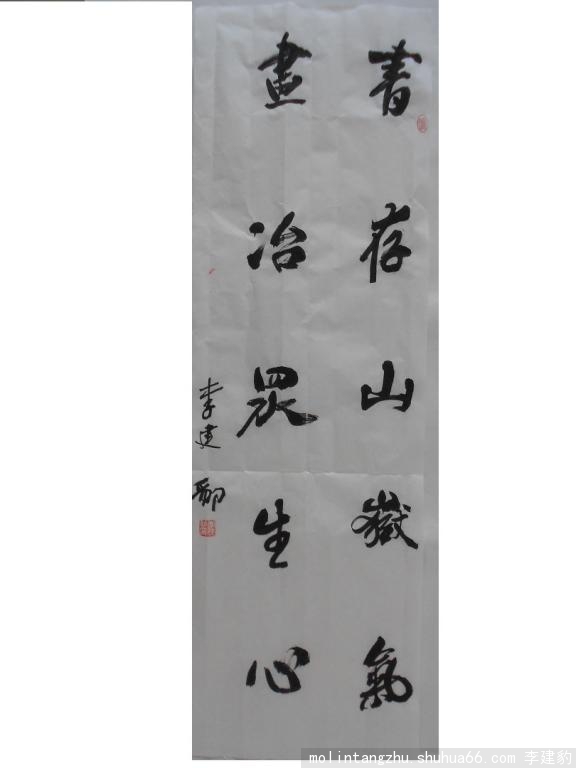 書存山嶽氣
畫冶眾生心
李建
molintangzhu.shuhua66.com 李建豹